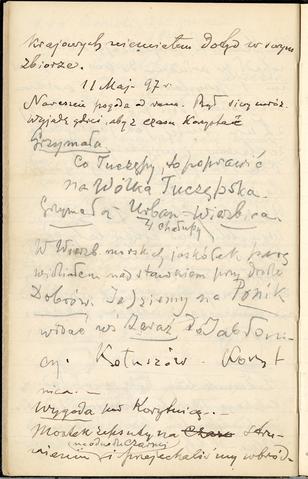 krajowych niemiałem dotąd w swym
zbiorze.
11 Maj 97 r
Nareszcie pogoda od rana. Był siwy mróz.
Wyjadę gdzieś, aby z czasu korzystać
Grzymała
Co Tuczępy, to poprawić
na Wólka Tuczępska.
Grzymała - Urban - Wierzbica
4 chałupy
W Wierzb morskich jaskółek parę
widziałem nad stawem przy drodze
Dobrów. Jedziemy na Ponik
widać wś Zaraz Do Jabłoni-
cy. Kotuszów. Koryt
nica. -
Wygoda pod Korytnicą. -
Mostek zepsuty na Czarn stru-
nad Czarnej
mieniem i przejechaliśmy wbród.